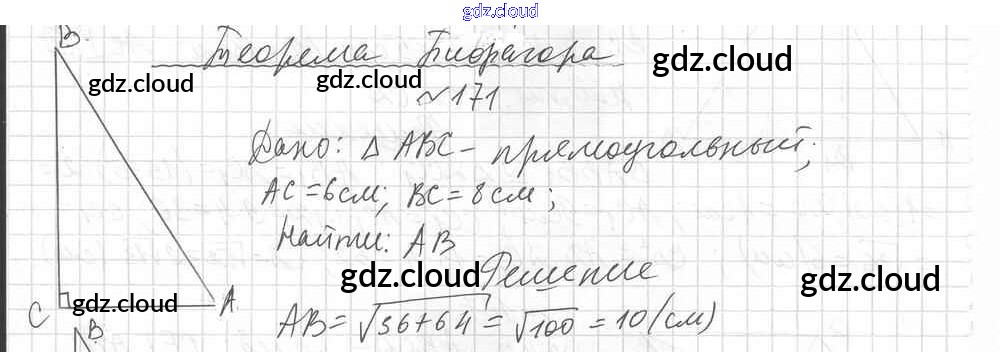 gdz.cloud
B.
Теорема Пифагора
gdz.cloud gdz.cloud gdz.cloud
~171
Дано: Δ ABC - прямоугольный;
AC = 6 см; BC = 8 см;
Найти: AB
gdz.cloud Решение gdz.cloud
C gdz.cloud A.
AB = √36+64 = √100 = 10 (см)
B.